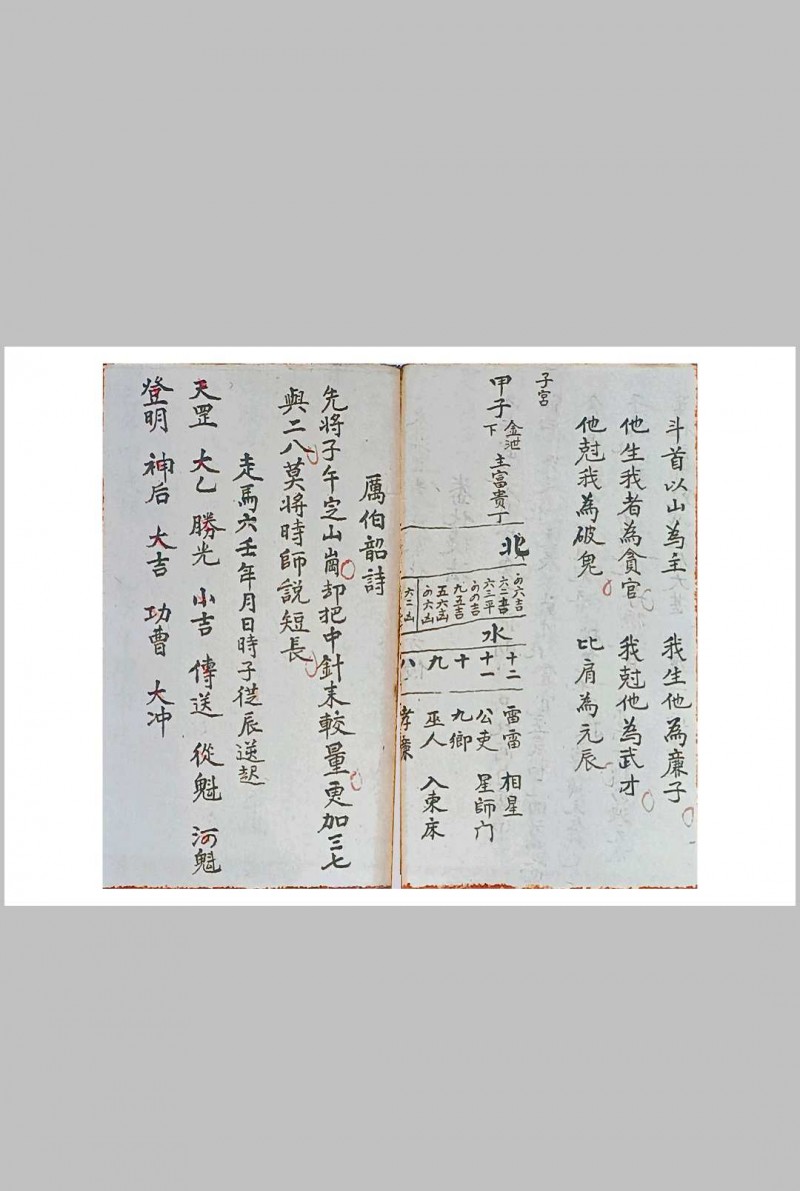 斗首以山為主　我生他為廉子
他生我者為貪官　我尅他為武才
他尅我為破鬼　比肩為元辰
子宮
甲子　金泄　主富貴丁
下
北
六三平
九五吉
五六凶
水
十二　雷雷　相星
十一　公吏　星師门
十　九卿
九　巫人　入東床
八　孝廉
厲伯韶詩
先將子午定山崗却把中針来較量更加三七
與二八莫將時師說短長
走馬六壬年月日時子從辰逆起
天罡　大乙　勝光　小吉　傳送　從魁　河魁
登明　神后　大吉　功曹　大冲